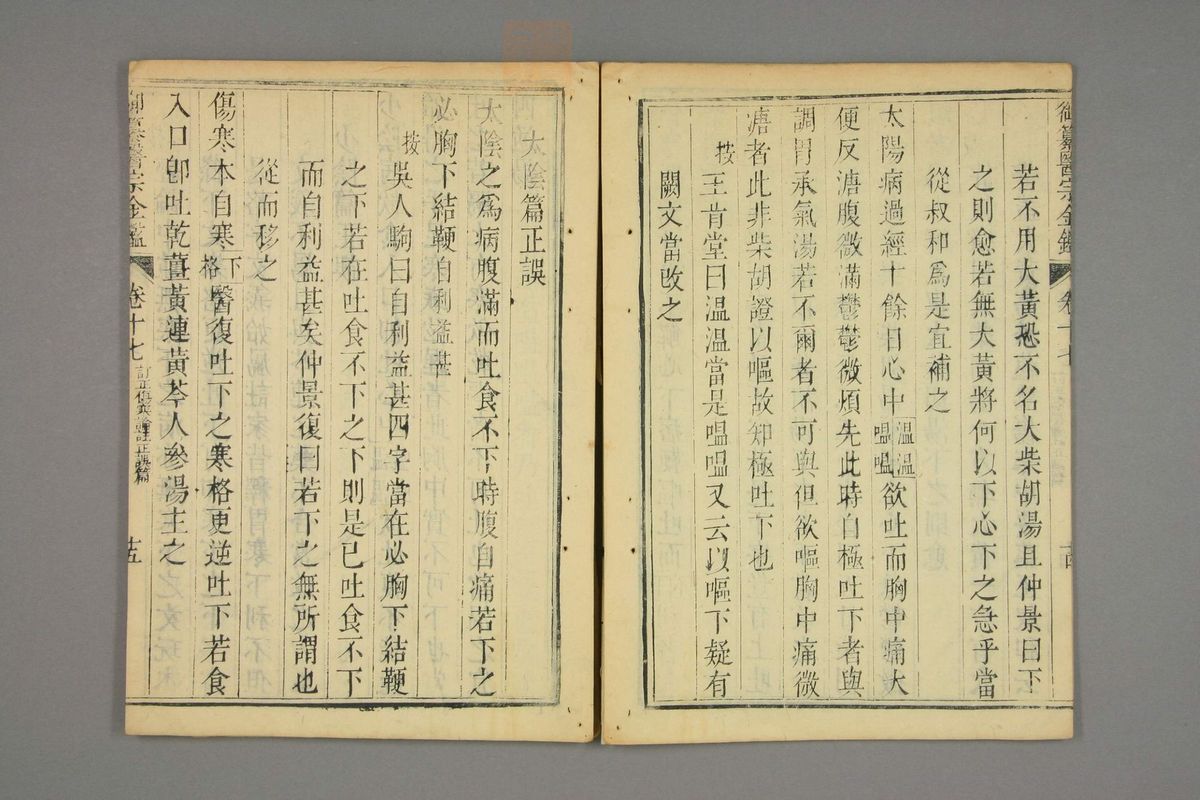 御纂醫宗金鑑 卷十七 十四
若不用大黃恐不名大柴胡湯且仲景曰下
之則愈若無大黃將何以下心下之急乎當
從叔和爲是宜補之
太陽病過經十餘日心中溫溫嗢嗢欲吐而胸中痛大
便反溏腹微滿鬱鬱微煩先此時自極吐下者與
調胃承氣湯若不爾者不可與但欲嘔胸中痛微
溏者此非柴胡證以嘔故知極吐下也
按王肯堂曰溫溫當是嗢嗢又云以嘔下疑有
闕文當改之
太陰篇正誤
太陰之爲病腹滿而吐食不下時腹自痛若下之
必胸下結鞕自利益甚
按吳人駒曰自利益甚四字當在必胸下結鞕
之下若在吐食不下之下則是已吐食不下
而自利益甚矣仲景復曰若下之無所謂也
從而移之
傷寒本自寒下格醫復吐下之寒格更逆吐下若食
入口卽吐乾薑黃連黃芩人參湯主之
御纂醫宗金鑑 卷十七 訂正傷寒論註正誤篇 十五